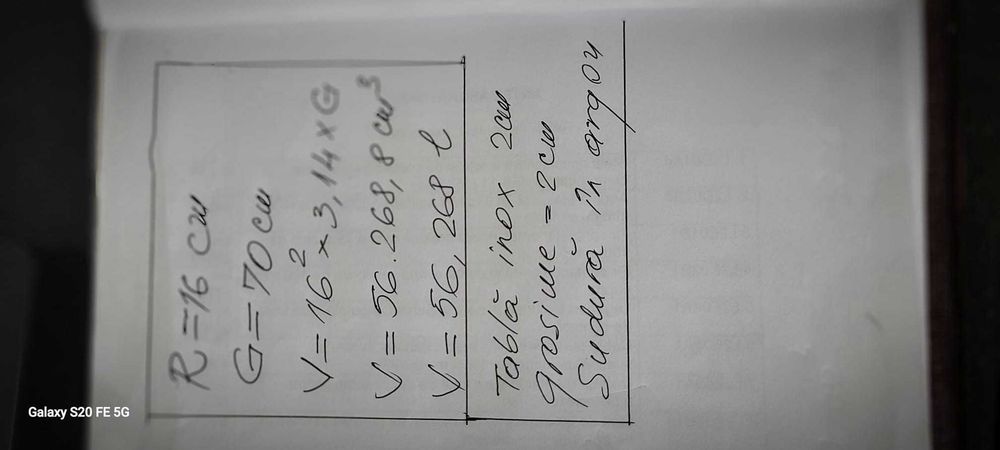 R=16 cm
G=70 cm
V=16² x 3,14 x G
V=56.268,8 cm³
V=56,268 l
Tablă inox 2cm
grosime = 2cm
Sudură în argon
Galaxy S20 FE 5G